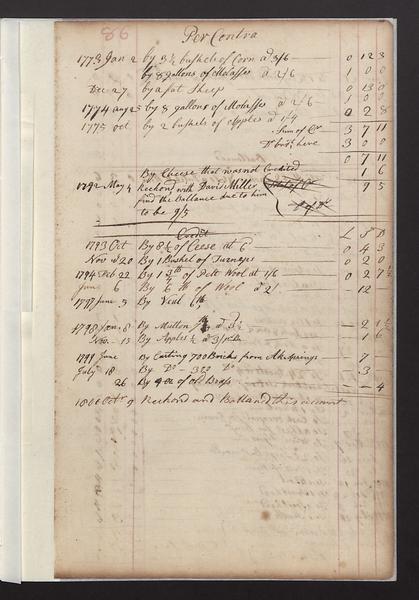 98
Per Contra
1773 Jan 2 by 3½ bushels of Corn a 3/6 0 12 3
by 8 gallons of Molasses a 2/6 1 0 0
Dec 27 by a fat Sheep 0 13 0
1774 aug 25 by 8 gallons of Molasses a 2/6 1 0 0
1775 oct by 2 bushels of Apples a 1/4 0 2 8
Sum of Cr 3 7 11
Dr brot here 3 0 0
0 7 11
By Cheese that was not Credited 1 6
1792 May 4 Reckond with David Miller 9 5
find the Ballance due to him
to be 9/5
Credit £ S D
1793 Oct By 8½ of Ceese at 6d 0 4 3
Nov 20 By 1 Bushel of Turneps 0 2 0
1794 Feb 22 By 1¾ lb of Pelt Wool at 1/6 0 2 7½
June 6 By 6 lb of Wool a 2/ 12
1797 June 3 By Veal 6 lb
1798 Jan 8 By Mutton a 3½ 2 1½
Nov 13 By Apples 1 6
1799 June By Carting 700 Bricks from Alk Springs 7
July 18 By Do 300 Do 3
26 By 4 oz of old Brass 4
1800 Octr 9 Reckond and Ballancd this account